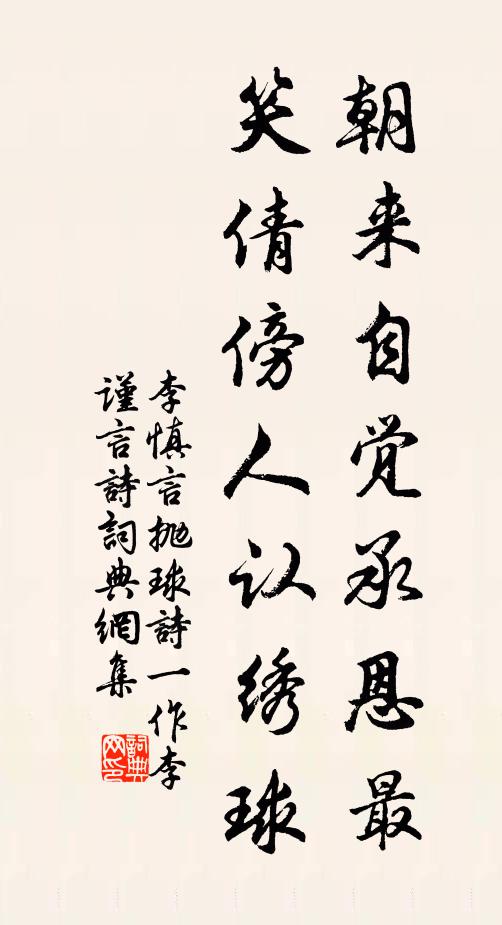 朝来自觉承恩最
笑倩傍人认绣球
李慎言抛球詩一作李
謹言詩詞典網集
詞典网印